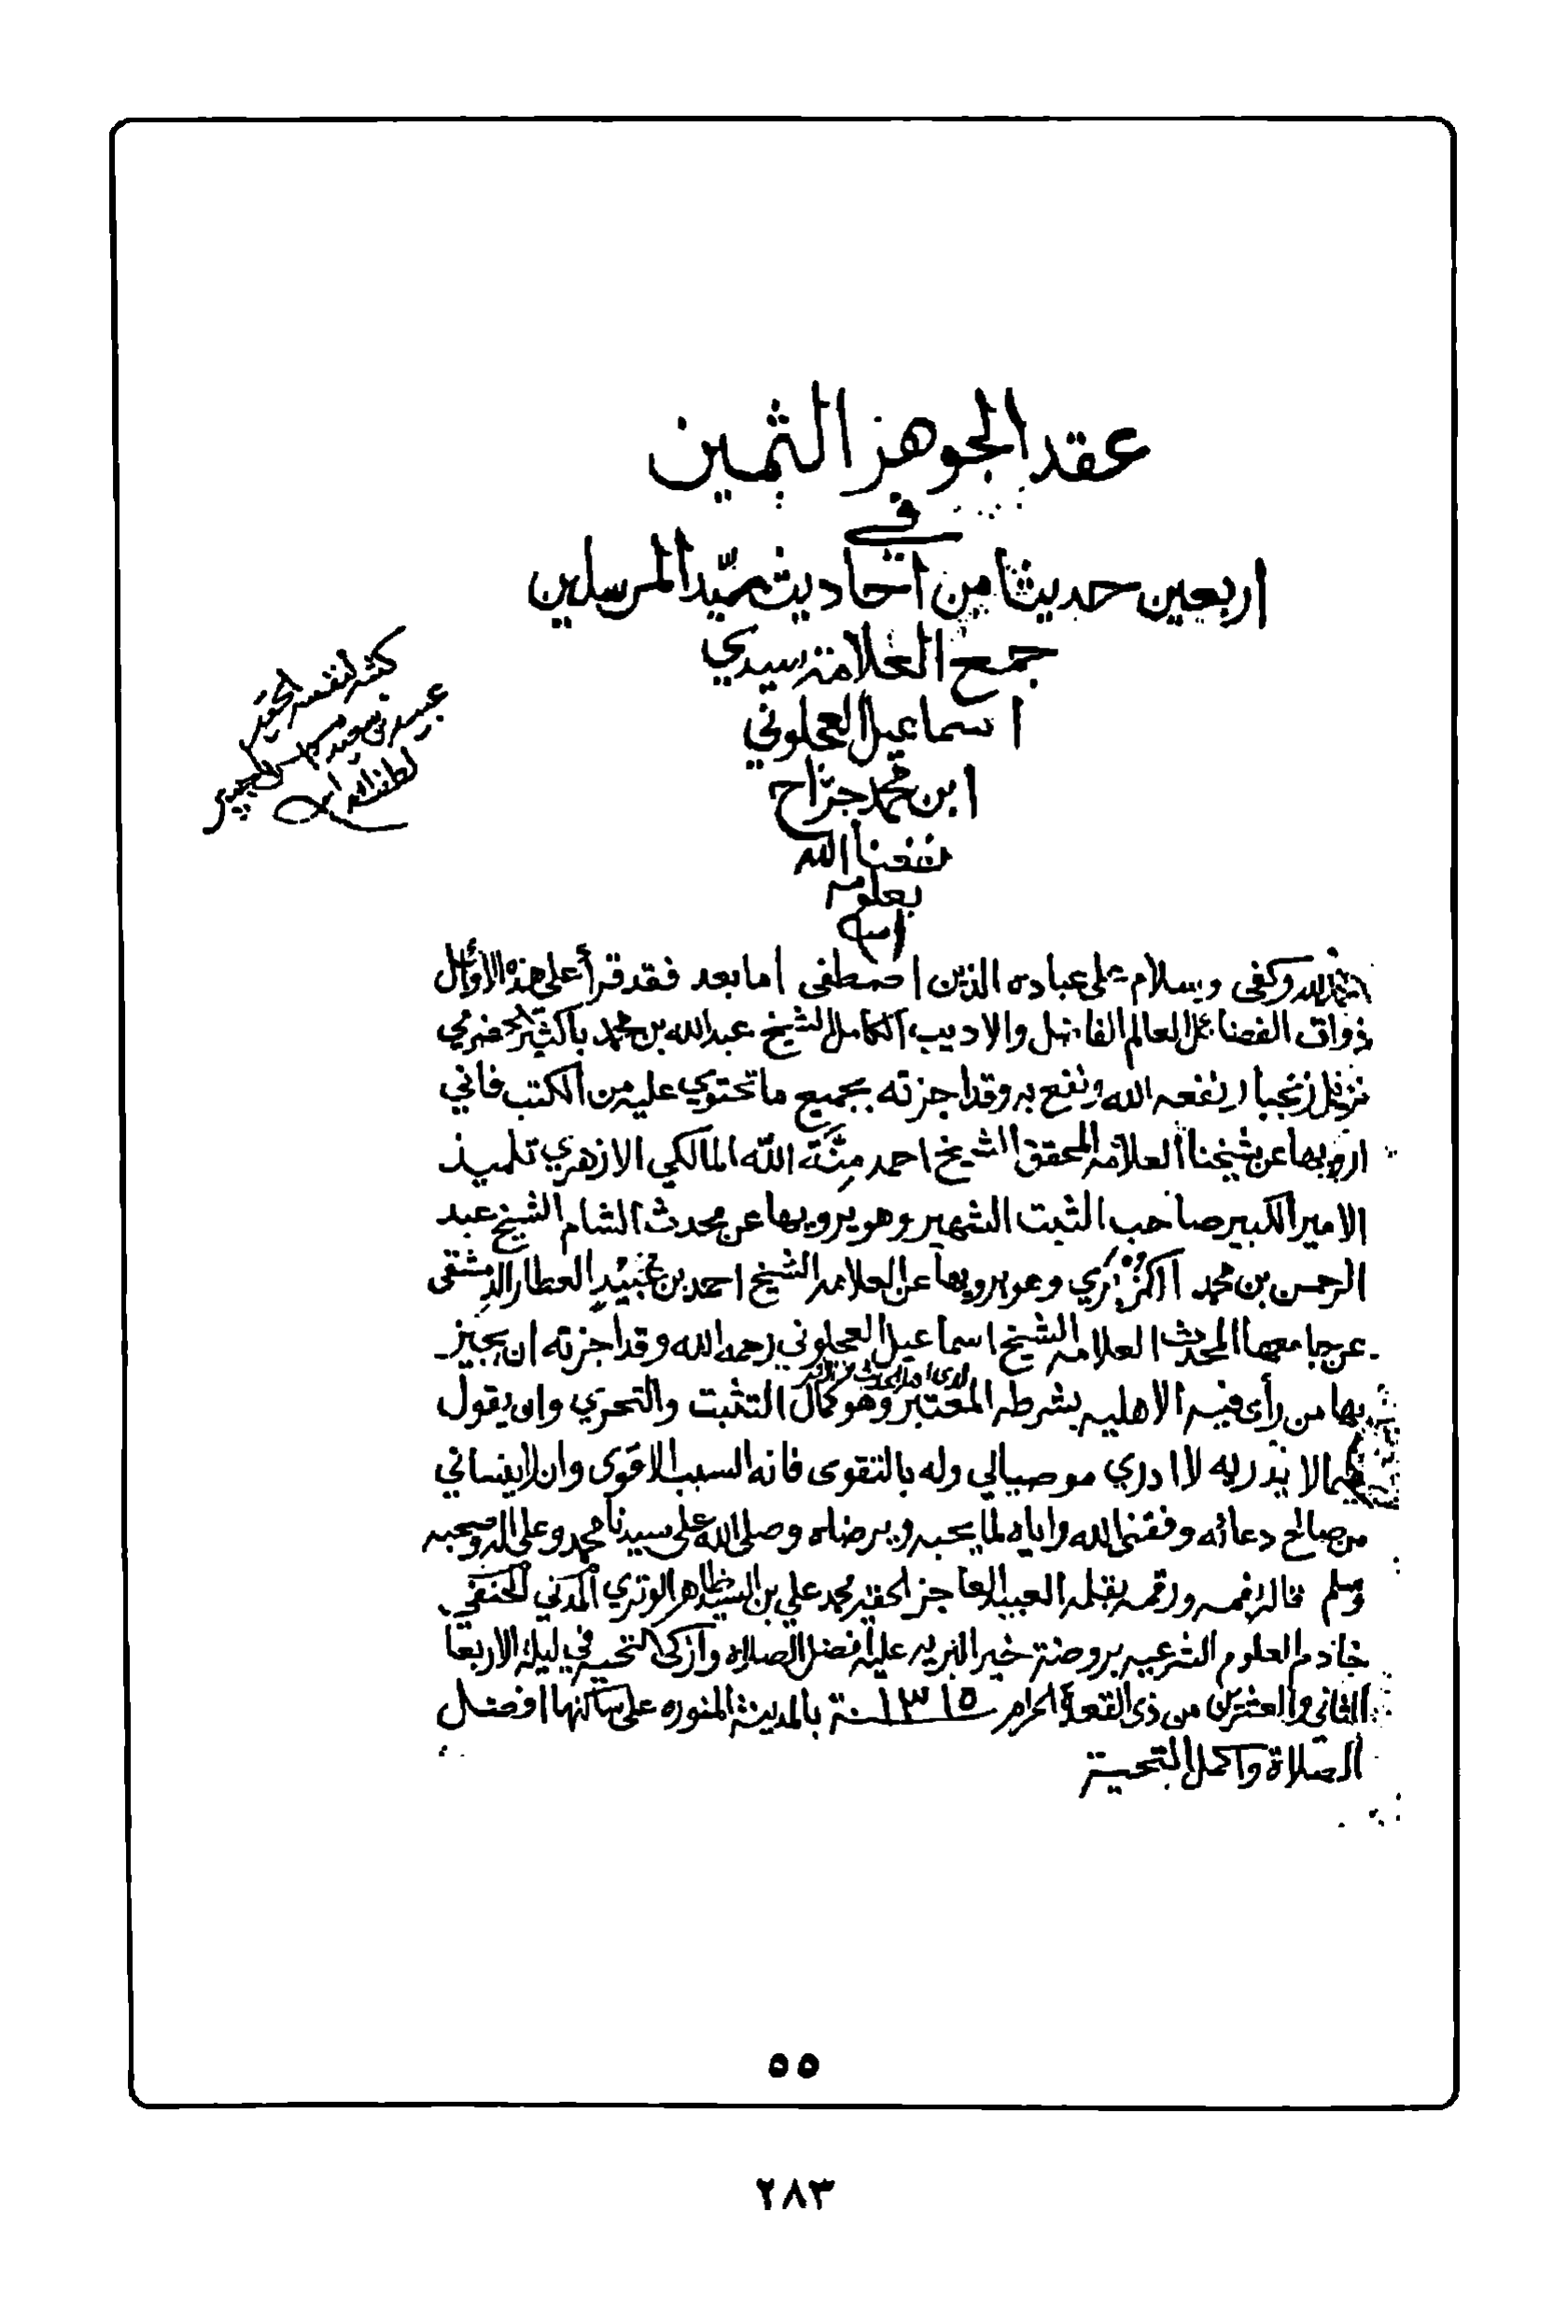 عقد الجوهر الثمين
في
اربعين حديثا من احاديث سيّد المرسلين
جمع العلامة سيدي
اسماعيل العجلوني
ابن محمد جرّاح
نفعنا الله
بعلومه
امين
الحمد لله وكفى وسلام على عباده الذين اصطفى اما بعد فقد قرأ على هذه الأوائل
ذواق الفضائل العالم الفاضل والاديب الكامل الشيخ عبد الله بن محمد باكثير الحضرمي
نزيل زنجبار نفعه الله ونفع به وقد اجزته بجميع ما تحتوي عليه من الكتب فاني
ارويها عن شيخنا العلامة المحقق الشيخ احمد مِنَّة الله المالكي الازهري تلميذ
الامير الكبير صاحب الثبت الشهير وهو يرويها عن محدث الشام الشيخ عبد
الرحمن بن محمد الكزبري وهو يرويها عن العلامه الشيخ احمد بن عُبَيْدٍ العطار الدمشقى
عن جامعها المحدث العلامه الشيخ اسماعيل العجلوني رحمه الله وقد اجزته ان يجيز
بها من رأى فيه الاهليه بشرطه المعتبر وهو كمال التثبت والتحري وان يقول
فيما لا يدريه لا ادري موصيا لي وله بالتقوى فانه السبب الاقوى وان لا ينساني
من صالح دعائه وفقنى الله واياه لما يحبه ويرضاه وصلى الله على سيدنا محمد وعلى اله وصحبه
وسلم قاله بفمه ورقمه بقلمه العبد العاجز الحقير محمد علي بن السيد ظاهر الوتري المدني الحنفي
خادم العلوم الشرعيه بروضة خير البريه عليه افضل الصلاه وازكى التحيه في ليلة الاربعا
الثاني والعشرين من ذى القعدة الحرام ١٣١٥ سنة بالمدينة المنوره على ساكنها افضل
الصلاة واكمل التحية
كتبه لنفسه الحقير
لطف الله به امين
٥٥
٢٨٣